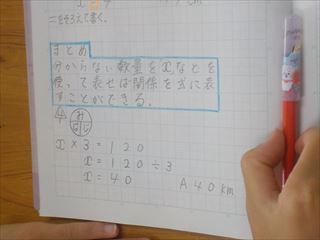 =をそろえて書く。
まとめ
分からない数量をxなどを
使って表せば関係を式に表
すことができる。
4 み は じ
x × 3 = 120
x = 120 ÷ 3
x = 40
A 40km